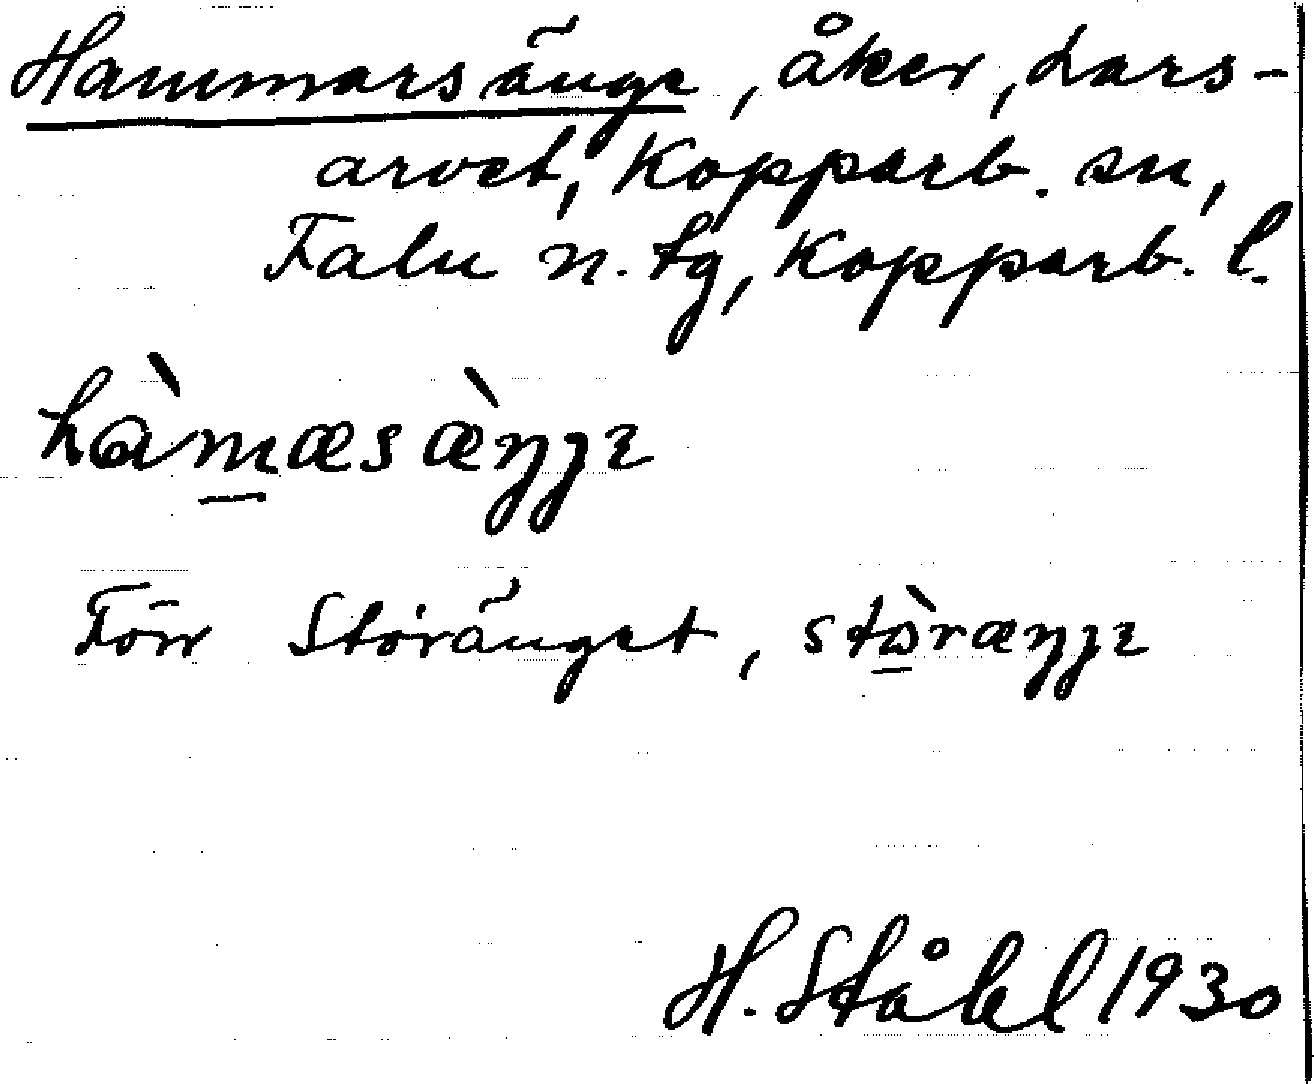 Hammarsänge, åker, Lars-
arvet, Kopparb. sn,
Falu n. tg, Kopparb. l.
hàmæsæ̀ŋgɪ
Förr Storänget, stɷ̀ræŋgɪ
H. Ståhl 1930